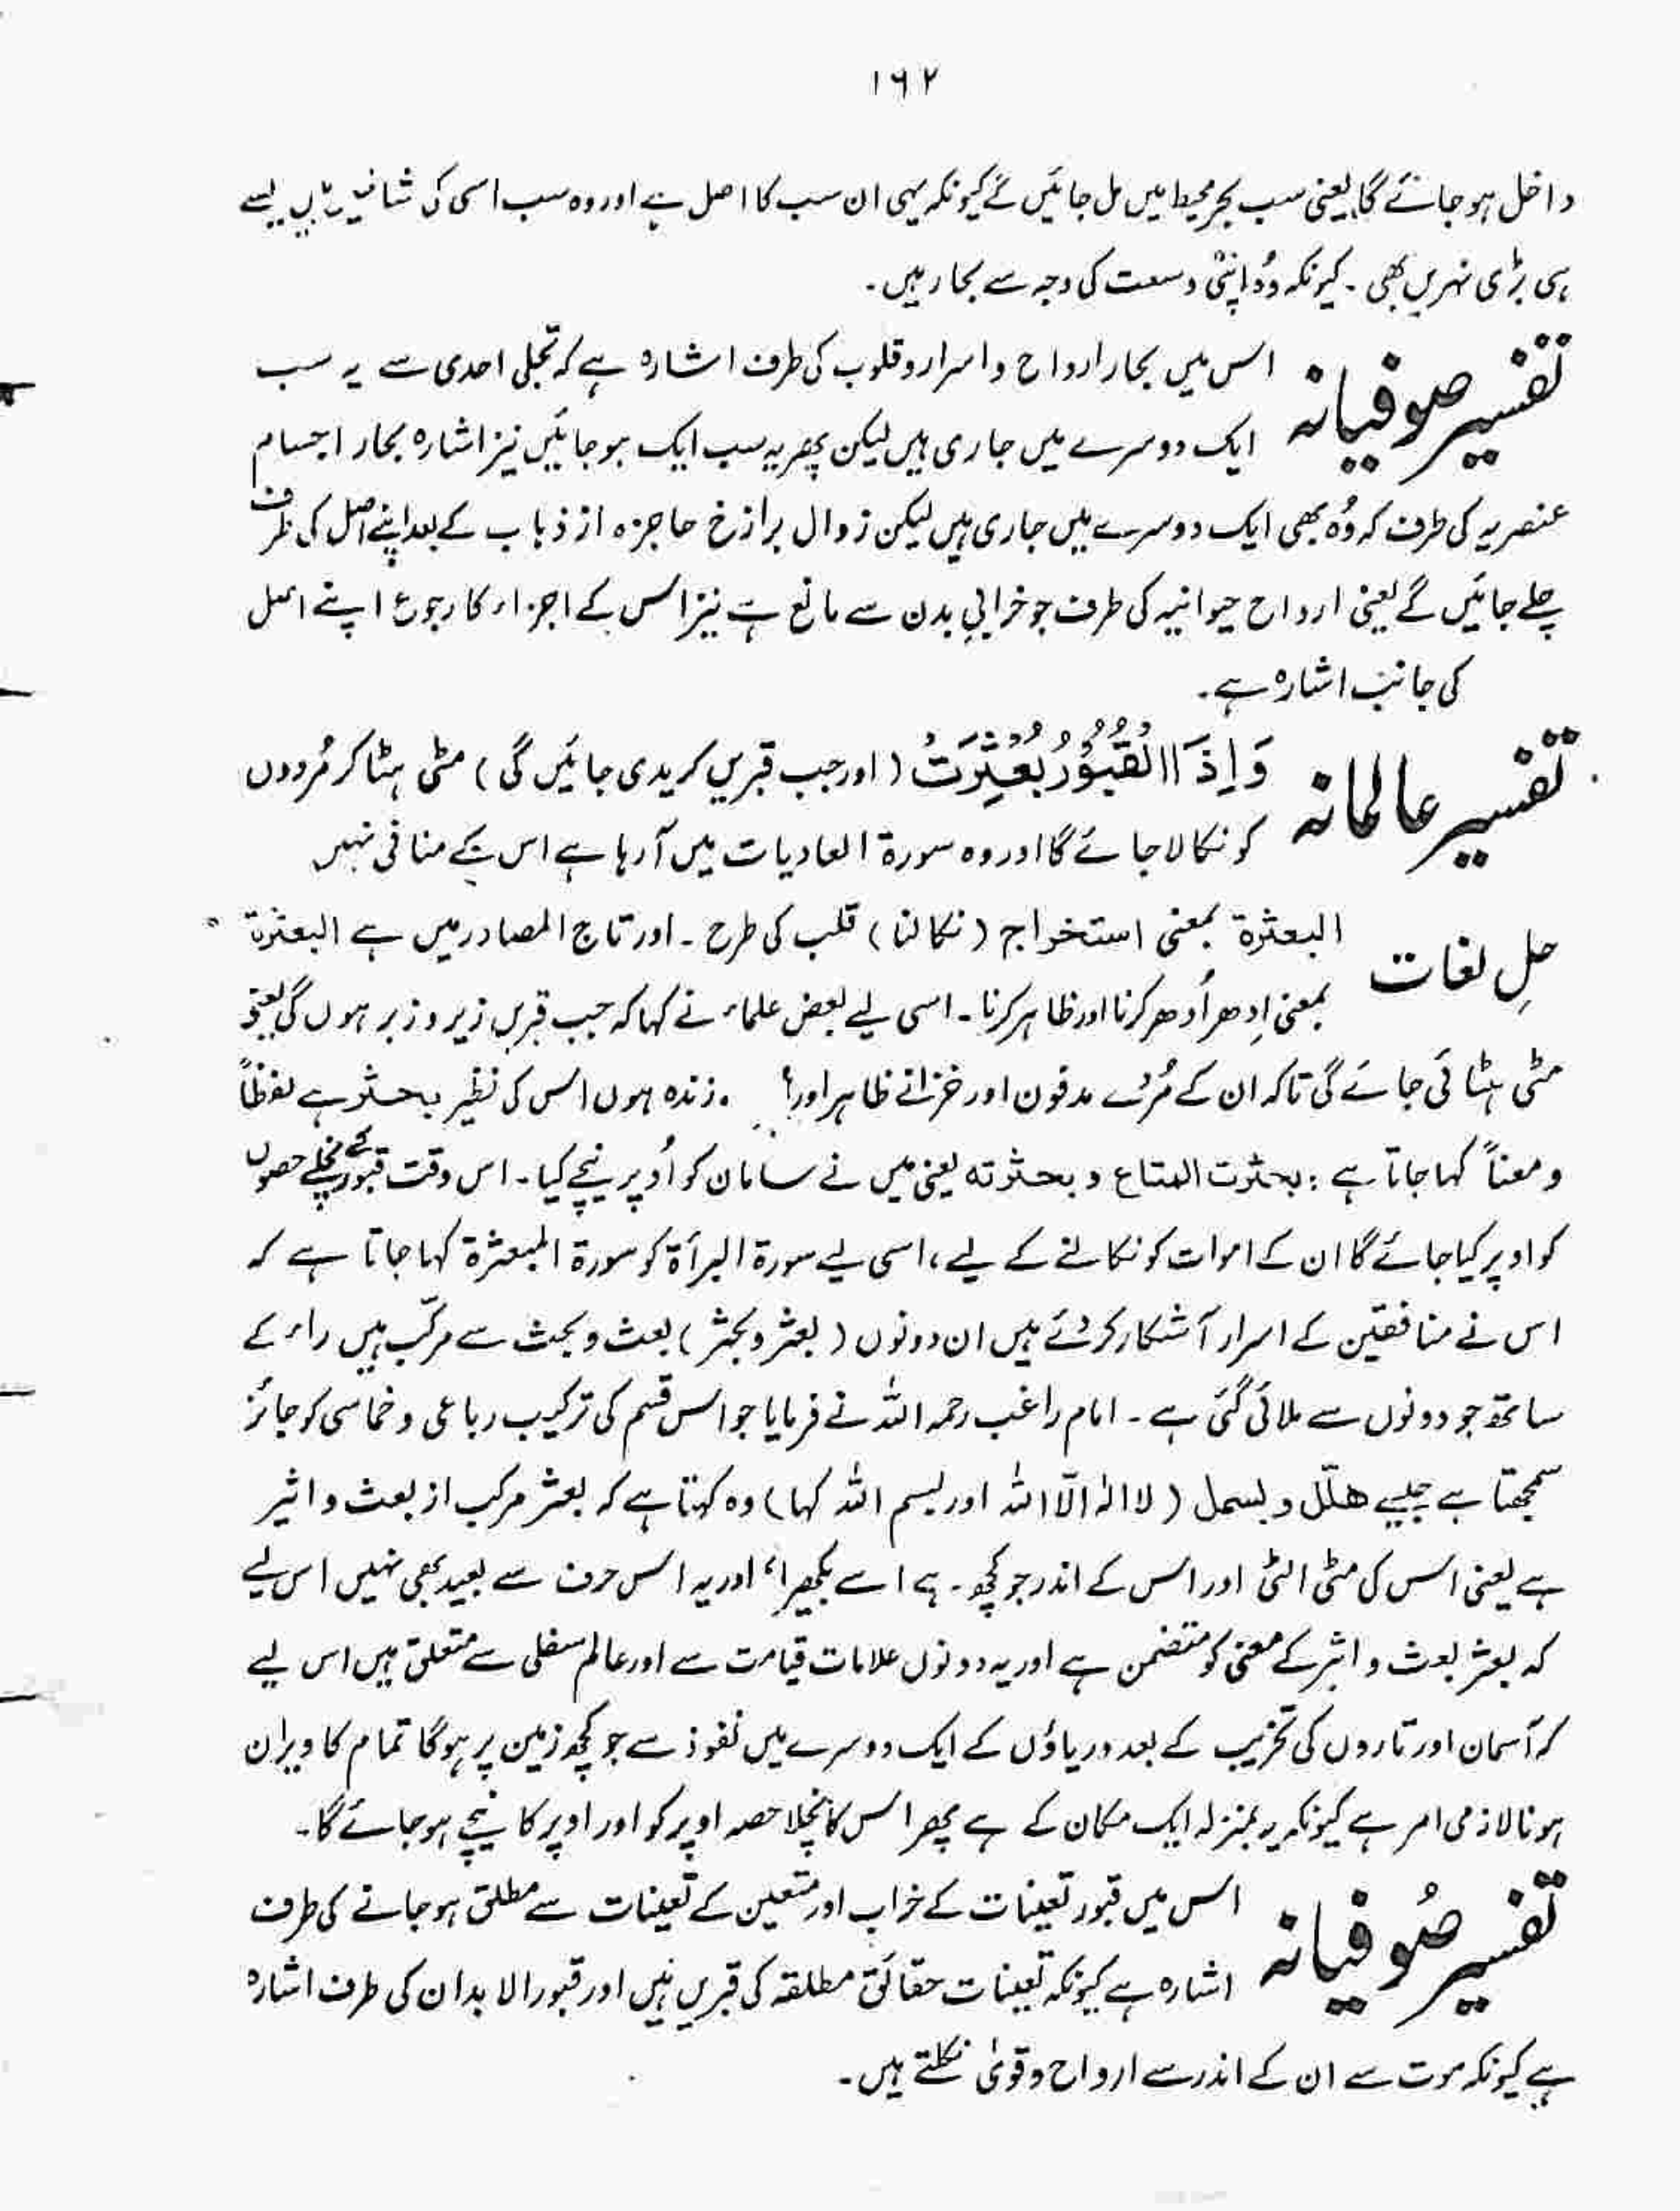 ۱۶۲
داخل ہو جائے گا یعنی سب بحر محیط میں مل جائیں گے کیونکہ یہی ان سب کا اصل ہے اور وہ سب اسی کی شاخیں ہیں ایسے
ہی بڑی نہریں بھی۔ کیونکہ وُہ اپنی وسعت کی وجہ سے بحار ہیں۔
تفسیر صوفیانہ اس میں بحار ارواح و اسرار و قلوب کی طرف اشارہ ہے کہ تجلی احدی سے یہ سب
ایک دوسرے میں جاری ہیں لیکن پھر یہ سب ایک ہو جائیں نیز اشارہ بحار اجسام
عنصریہ کی طرف کہ وُہ بھی ایک دوسرے میں جاری ہیں لیکن زوال برازخ حاجزہ از ذہاب کے بعد اپنے اصل کی طرف
چلے جائیں گے یعنی ارواح حیوانیہ کی طرف جو خرابیِ بدن سے مانع ہے نیز اس کے اجزاء کا رجوع اپنے اصل
کی جانب اشارہ ہے۔
تفسیر عالمانہ وَاِذَا الْقُبُوْرُ بُعْثِرَتْ (اور جب قبریں کریدی جائیں گی) مٹی ہٹا کر مُردوں
کو نکالا جائے گا اور وہ سورۃ العادیات میں آرہا ہے اس کے منافی نہیں
حلِ لغات البعثرۃ بمعنی استخراج (نکالنا) قلب کی طرح۔ اور تاج المصادر میں ہے البعثرۃ
بمعنی اِدھر اُدھر کرنا اور ظاہر کرنا۔ اسی لیے بعض علماء نے کہا کہ جب قبریں زیر و زبر ہوں گی یعنی
مٹی ہٹائی جائے گی تاکہ ان کے مُردے مدفون اور خزانے ظاہر اور زندہ ہوں اس کی نظیر بحثر ہے لفظاً
و معناً کہا جاتا ہے : بحثرت المتاع و بحثرته یعنی میں نے سامان کو اُوپر نیچے کیا۔ اس وقت قبور کے نچلے حصوں
کو اوپر کیا جائے گا ان کے اموات کو نکالنے کے لیے، اسی لیے سورۃ البرأۃ کو سورۃ المبعثرۃ کہا جاتا ہے کہ
اس نے منافقین کے اسرار آشکار کر دئے ہیں ان دونوں (بعثر و بحثر) بعث و بحث سے مرکّب ہیں راء کے
ساتھ جو دونوں سے ملائی گئی ہے۔ امام راغب رحمہ اللہ نے فرمایا جو اس قسم کی ترکیب رباعی و خماسی کو جائز
سمجھتا ہے جیسے ھلّل و بسمل (لا الٰہ الّا اللہ اور بسم اللہ کہا) وہ کہتا ہے کہ بعثر مرکب از بعث و اثیر
ہے یعنی اس کی مٹی الٹی اور اس کے اندر جو کچھ۔ ہے اسے بکھیرا، اور یہ اس حرف سے بعید بھی نہیں اس لیے
کہ بعثر بعث و اثیر کے معنی کو متضمن ہے اور یہ دونوں علامات قیامت سے اور عالم سفلی سے متعلق ہیں اس لیے
کہ آسمان اور تاروں کی تخریب کے بعد دریاؤں کے ایک دوسرے میں نفوذ سے جو کچھ زمین پر ہوگا تمام کا ویران
ہونا لازمی امر ہے کیونکہ یہ بمنزلہ ایک مکان کے ہے پھر اس کا نچلا حصہ اوپر کو اور اوپر کا نیچے ہو جائے گا۔
تفسیر صُوفیانہ اس میں قبور تعینات کے خراب اور متعین کے تعینات سے مطلق ہو جانے کی طرف
اشارہ ہے کیونکہ تعینات حقائق مطلقہ کی قبریں ہیں اور قبور الابدان کی طرف اشارہ
ہے کیونکہ موت سے ان کے اندر سے ارواح و قویٰ نکلتے ہیں۔